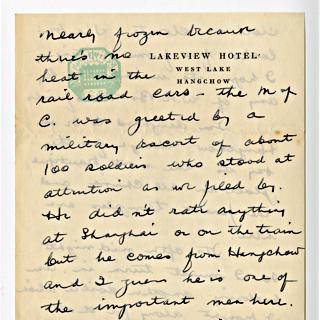 nearly frozen because
there's no
LAKEVIEW HOTEL
WEST LAKE
HANGCHOW
heat in the
rail road cars — the M of
C. was greeted by a
military escort of about
100 soldiers who stood at
attention as we filed by.
He didn't rate anything
at Shanghai or on the train
but he comes from Hangchow
and I guess he is one of
the important men here.